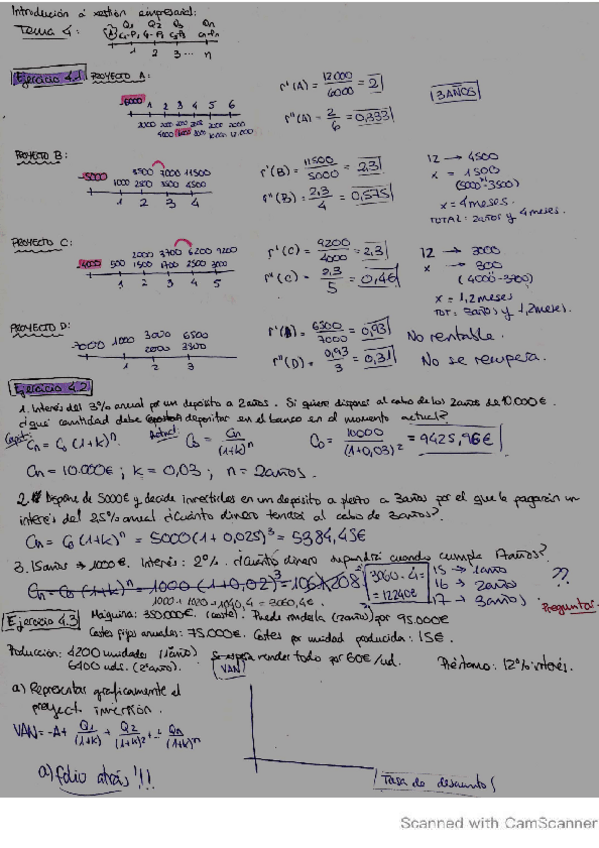 Introdución á xestión empresarial:
Tema 4:
Q1 Q2 Q3 Qn
1 2 3 ... n
Ejercicio 4.1 PROYECTO A:
-6000 1 2 3 4 5 6
r'(A) = 12000/6000 = 2
r''(A) = 2/6 = 0,333
3 AÑOS
PROYECTO B:
-5000
7000 11500
1000 2500 3500 4500
1 2 3 4
r'(B) = 11500/5000 = 2,3
r''(B) = 2,3/4 = 0,575
12 → 4500
x = 1500
(5000-3500)
x = 4 meses.
TOTAL: 2 años y 4 meses.
PROYECTO C:
2000 3700 6200 9200
-4000 500 1500 1700 2500 3000
1 2 3 4 5
r'(C) = 9200/4000 = 2,3
r''(C) = 2,3/5 = 0,46
12 → 3000
x → 300
(4000-3700)
x = 1,2 meses
TOT: 3 años y 1,2 meses.
PROYECTO D:
-7000 1000 3000 6500
2000 3500
1 2 3
r'(D) = 6500/7000 = 0,93
No rentable.
r''(D) = 0,93/3 = 0,31
No se recupera.
Ejercicio 4.2
1. Interés del 3% anual por un depósito a 2 años. Si quiere disponer al cabo de los 2 años de 10.000€.
¿qué cantidad debe depositar en el banco en el momento actual?
Cn = C0 (1+k)^n Actual: C0 = Cn/(1+k)^n C0 = 10000/(1+0,03)^2 = 9425,96€
Cn = 10.000€ ; k = 0,03 ; n = 2 años.
2. Dispone de 5000€ y decide invertirlos en un depósito a plazo a 3 años por el que le pagarán un
interés del 2,5% anual ¿Cuánto dinero tendrá al cabo de 3 años?.
Cn = C0 (1+k)^n = 5000 (1+0,025)^3 = 5384,45€
3. 15 años → 1000€. Interés: 2%. ¿Cuánto dinero supondrá cuando cumpla 17 años?
Cn = C0 (1+k)^n = 1000 (1+0,02)^3 = 1061,208
1000 + 1020 + 1040,4 = 3060,4€.
3060·4 =
= 12240€
15 → 1año
16 → 2año
17 → 3años
??
Preguntar.
Ejercicio 4.3 Máquina: 350.000€. (coste). Puede venderla (2 años) por 95.000€
Costes fijos anuales: 75.000€. Costes por unidad producida: 15€.
Producción: 4200 unidades (1 año) Se espera vender todo por 60€/ud. Préstamo: 12% interés.
6400 uds. (2º año).
VAN
a) Representar gráficamente el
proyect. inversión.
VAN = -A + Q1/(1+k) + Q2/(1+k)^2 + ... Qn/(1+k)^n
a) folio atrás!!!
Tasa de descuento
Scanned with CamScanner